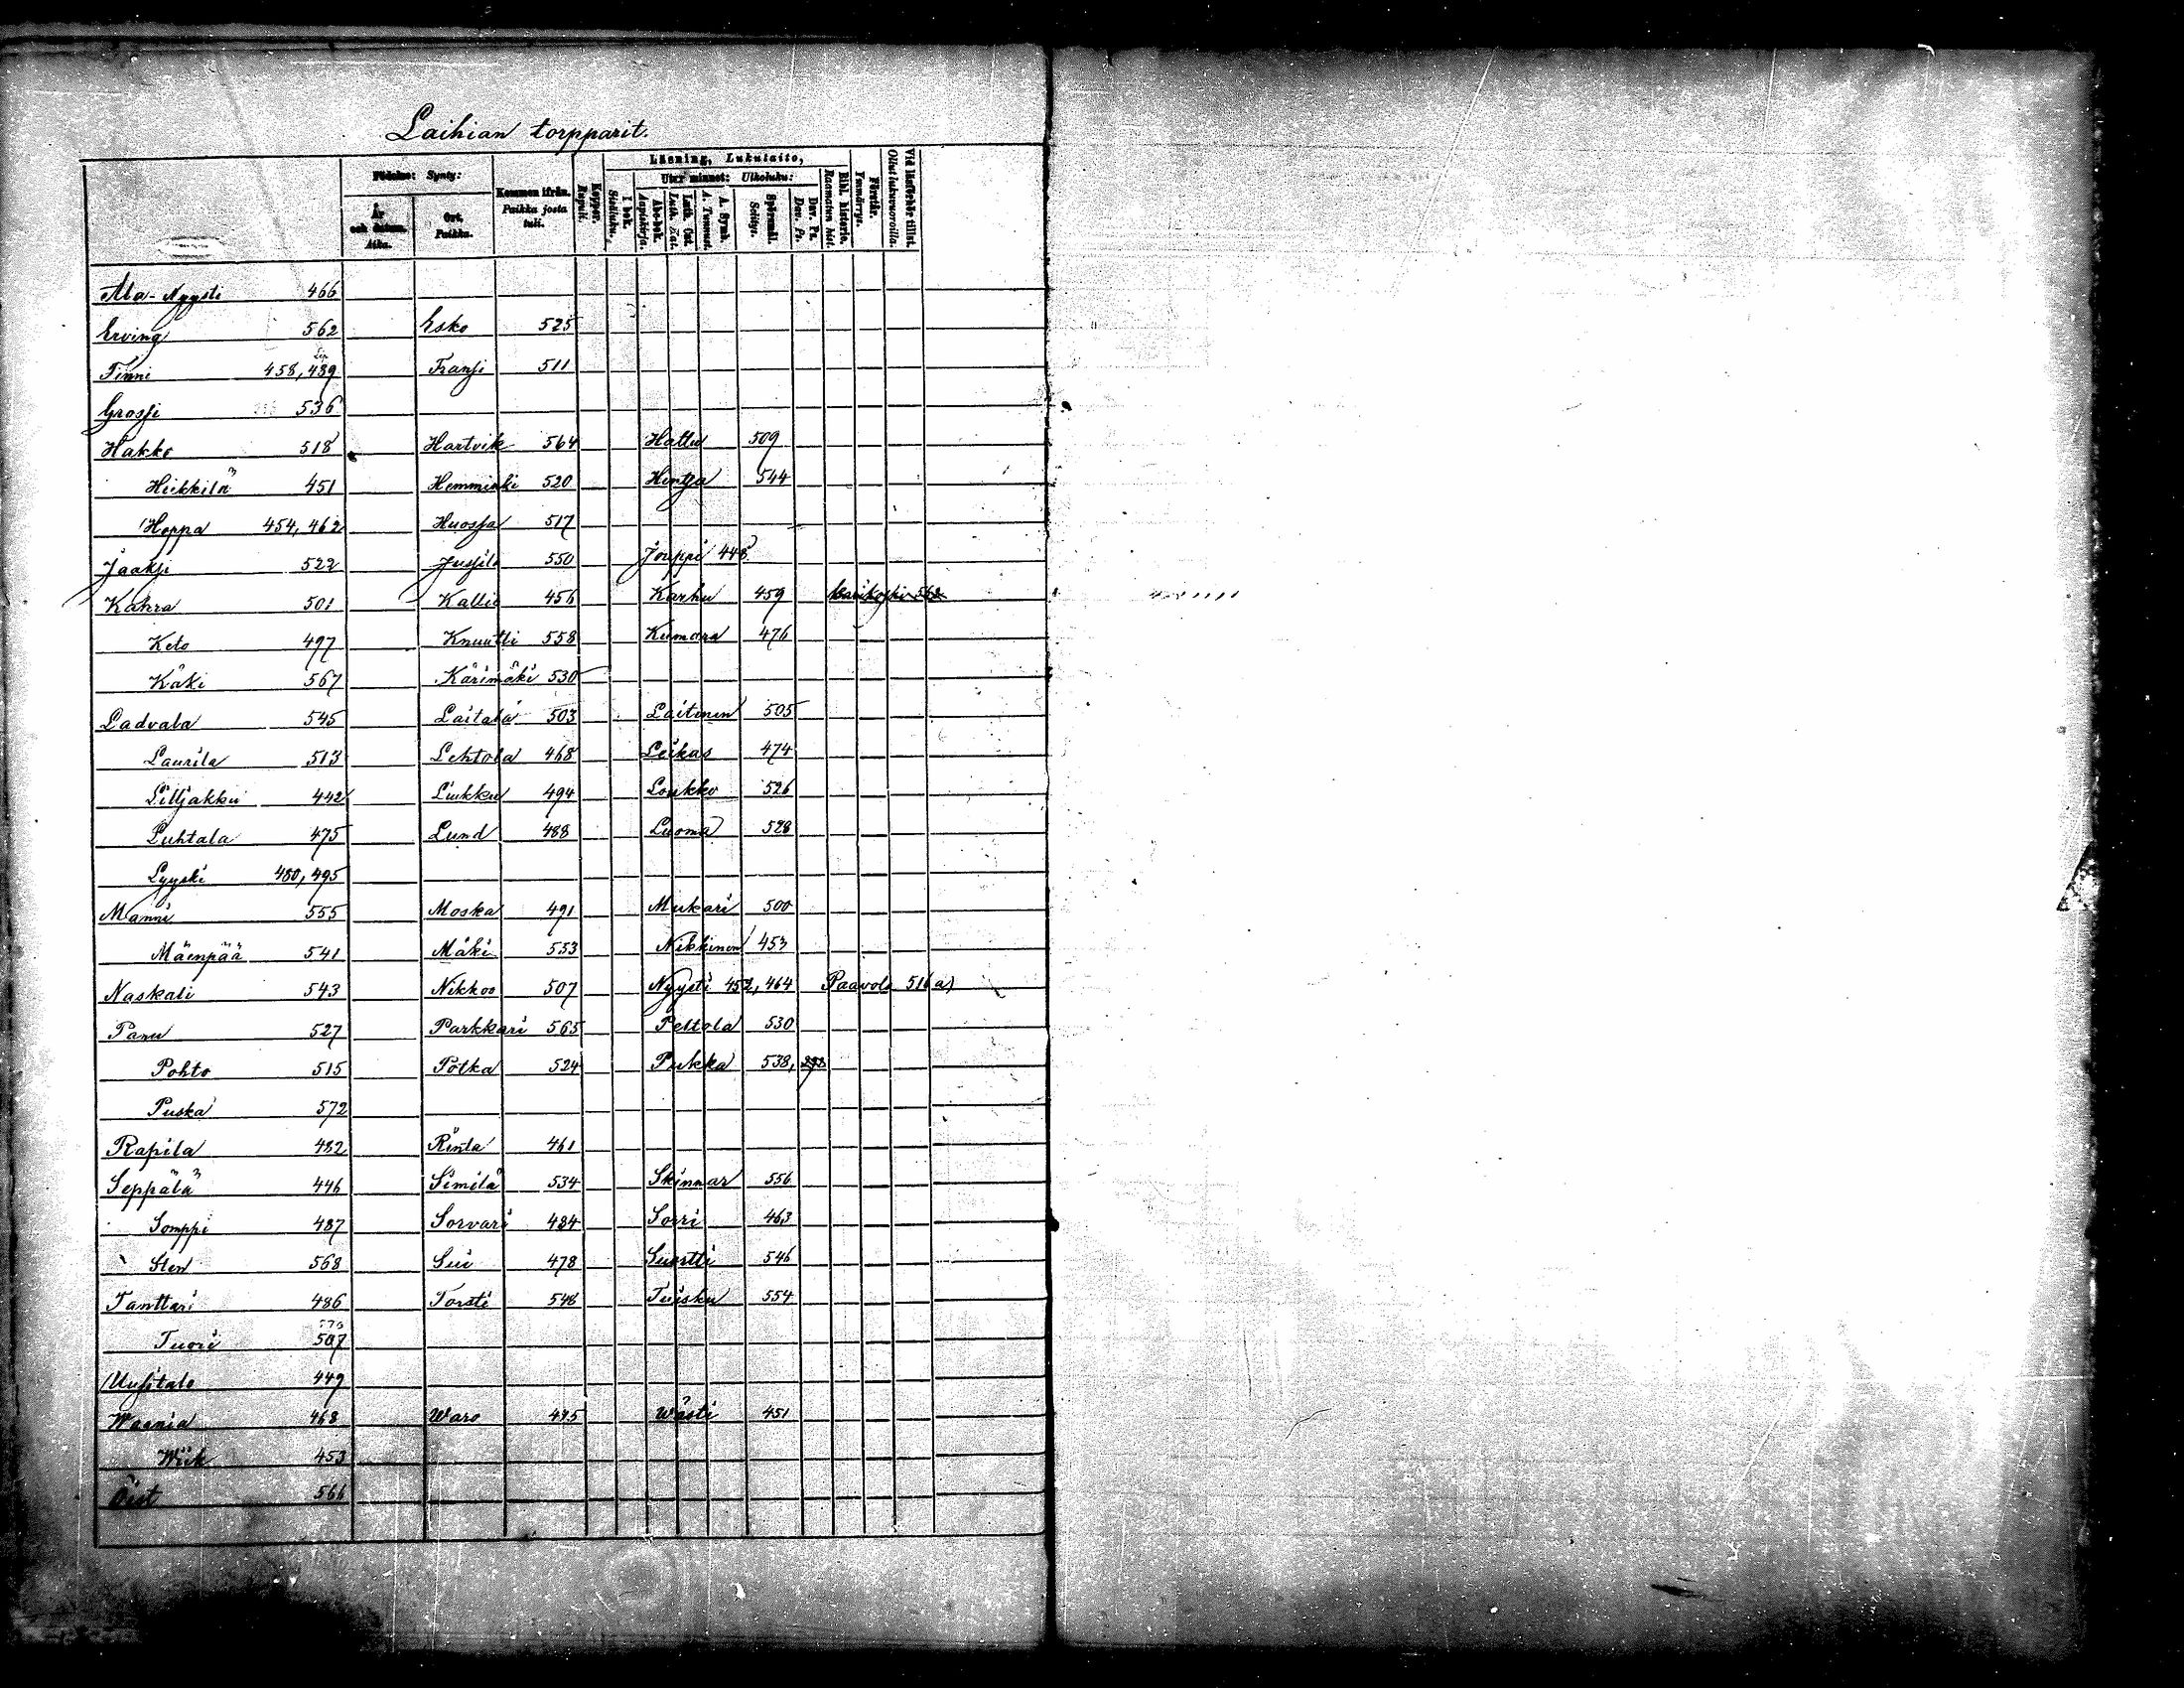 Laihian torpparit.
Födelse: Synty:
År och datum. Aika.
Ort. Paikka.
Kommen ifrån. Paikka josta tuli.
Koppor. Rupuli.
Läsning, Lukutaito,
I bok. Sisäluku.
Utur minnet: Ulkoluku:
Abc-bok. Aapiskirja.
Luth. Cat. Luth. Kat.
A. Symb. A. Tunnust.
Spörsmål. Selitys.
Dav. Ps. Dav. Ps.
Bibl. historia. Raamatun hist.
Förstår. Ymmärrys.
Vid läsförhör tillst. Ollut lukuvuoroilla.
Ala-Nyysti 466
Erving 562 Esko 525
Finni 458, 489 Fransi 511
Grossi 536
Hakko 518 Hartvik 564 Hattu 509
Heikkilä 451 Hemminki 520 Hentza 544
Hoppa 454, 462 Huossa 517
Jaaksi 522 Jussila 550 Jouppi 448
Kahra 501 Kallio 456 Karhu 459 Karikoski 562
Keto 497 Knuutti 558 Kumara 476
Käki 567 Kärimäki 530
Ladvala 545 Laitala 503 Laitinen 505
Laurila 513 Lehtola 468 Leikas 474
Liljakku 442 Liukku 494 Loukko 526
Luhtala 475 Lund 488 Luoma 528
Lyyski 480, 495
Manni 555 Moska 491 Mukari 500
Mäenpää 541 Mäki 553 Nikkinen 453
Naskali 543 Nikkos 507 Nyysti 452, 464 Paavola 516 a)
Panu 527 Parkkari 565 Peltola 530
Pohto 515 Potka 524 Pukka 538,
Puska 572
Rapila 482 Rinta 461
Seppälä 446 Similä 534 Skinnar 556
Somppi 487 Sorvari 484 Sorri 463
Sten 568 Sui 478 Suortti 546
Tanttari 486 Torsti 548 Tuisku 554
Tuori 507
Uusitalo 449
Waania 468 Waro 495 Wästi 451
Wiik 453
Öist 566